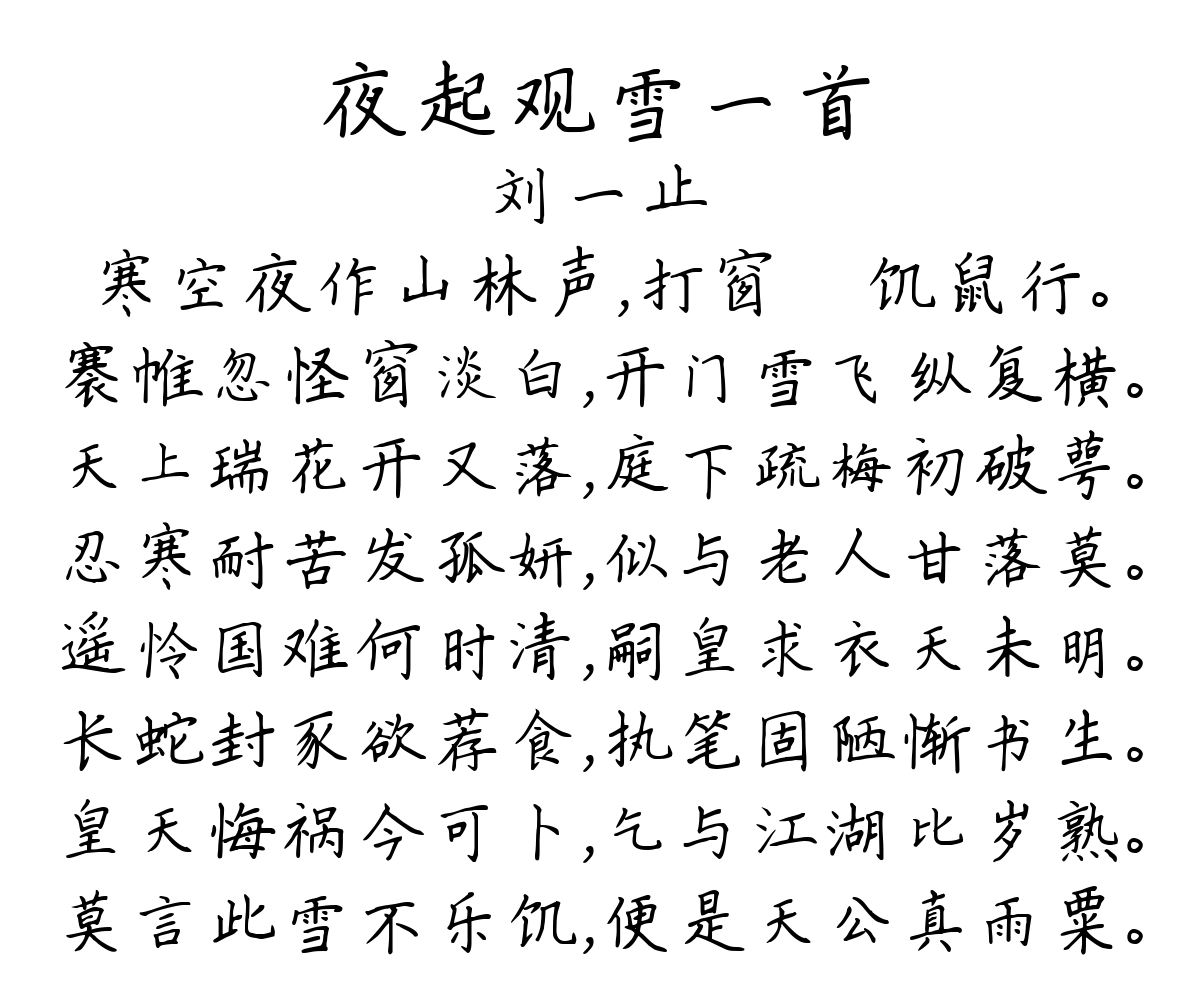 夜起观雪一首
刘一止
寒空夜作山林声,打窗 饥鼠行。
褰帷忽怪窗淡白,开门雪飞纵复横。
天上瑞花开又落,庭下疏梅初破萼。
忍寒耐苦发孤妍,似与老人甘落莫。
遥怜国难何时清,嗣皇求衣天未明。
长蛇封豕欲荐食,执笔固陋惭书生。
皇天悔祸今可卜,乞与江湖比岁熟。
莫言此雪不乐饥,便是天公真雨粟。